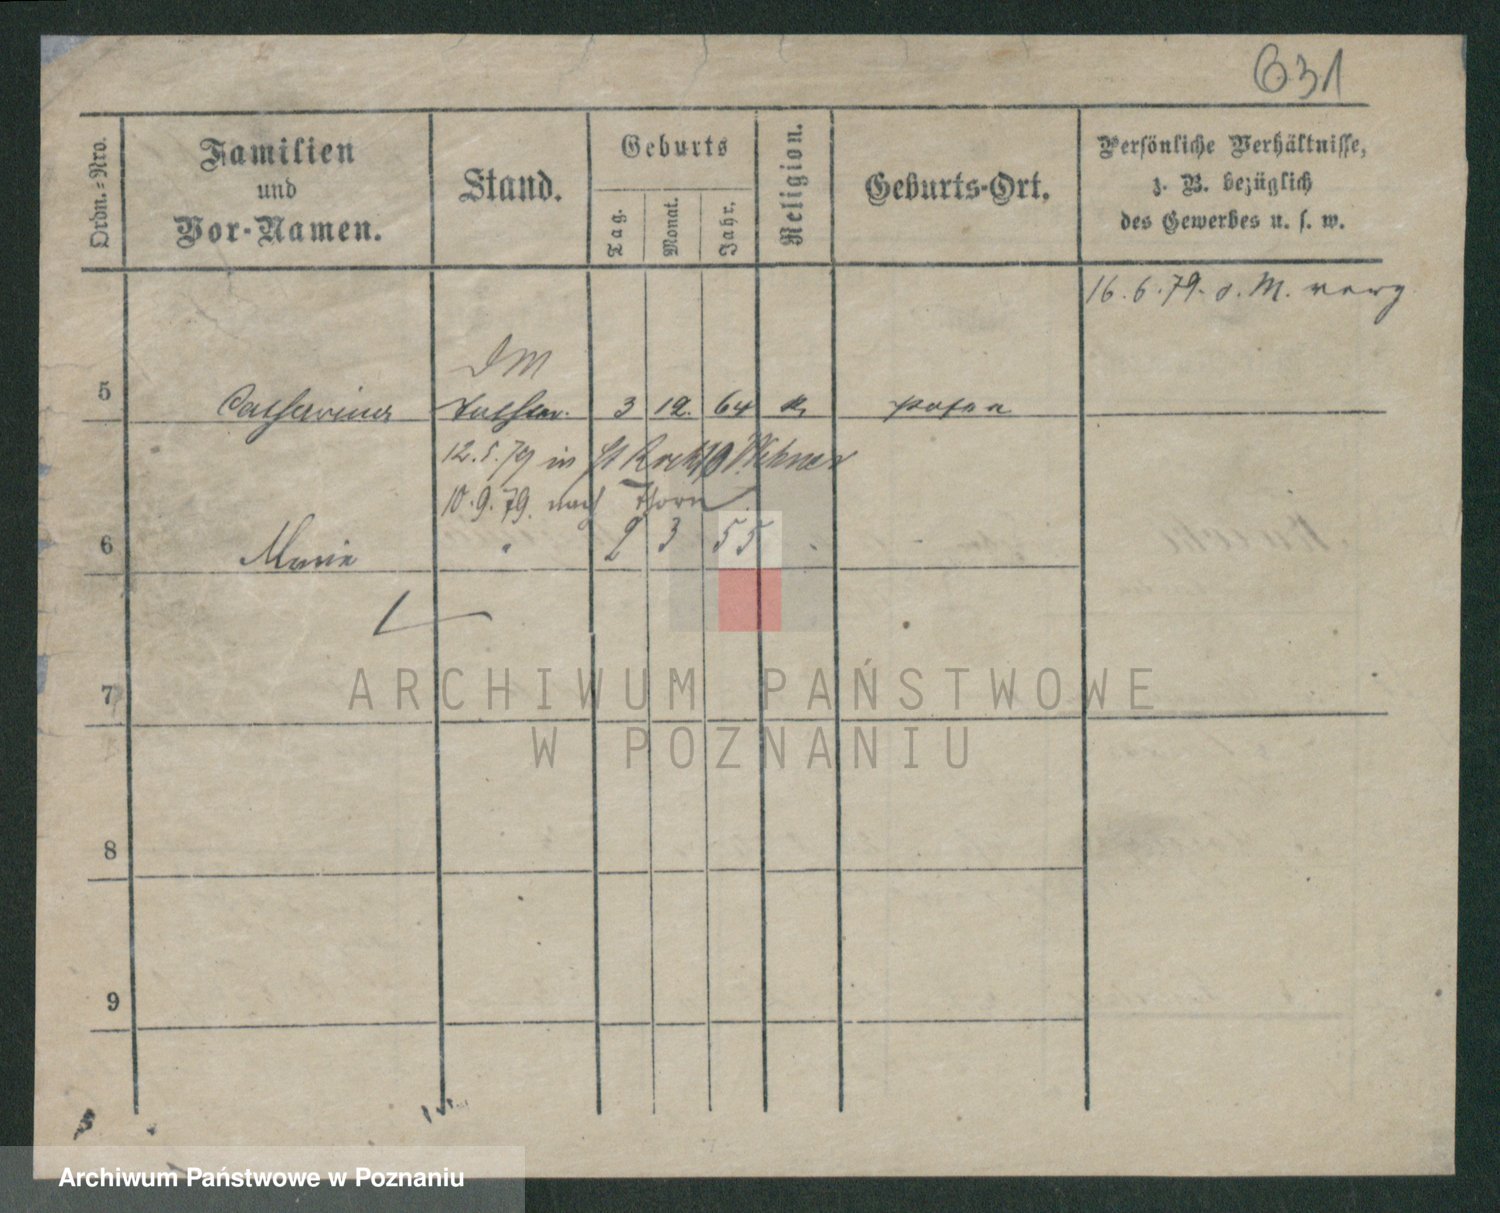 631
Ordn.-Nro.
Familien
und
Vor-Namen.
Stand.
Geburts
Tag.
Monat.
Jahr.
Religion.
Geburts-Ort.
Persönliche Verhältnisse,
z. B. bezüglich
des Gewerbes u. s. w.
16.6.79. d. M. verz
DM
5 Catharina Tochter. 3 12. 64 k. Posen
12.5.79 in St Roch 10 Wehner
10.9.79. nach Thorn
6 Marie " 2 3 55
7
8
9
ARCHIWUM PAŃSTWOWE
W POZNANIU
Archiwum Państwowe w Poznaniu